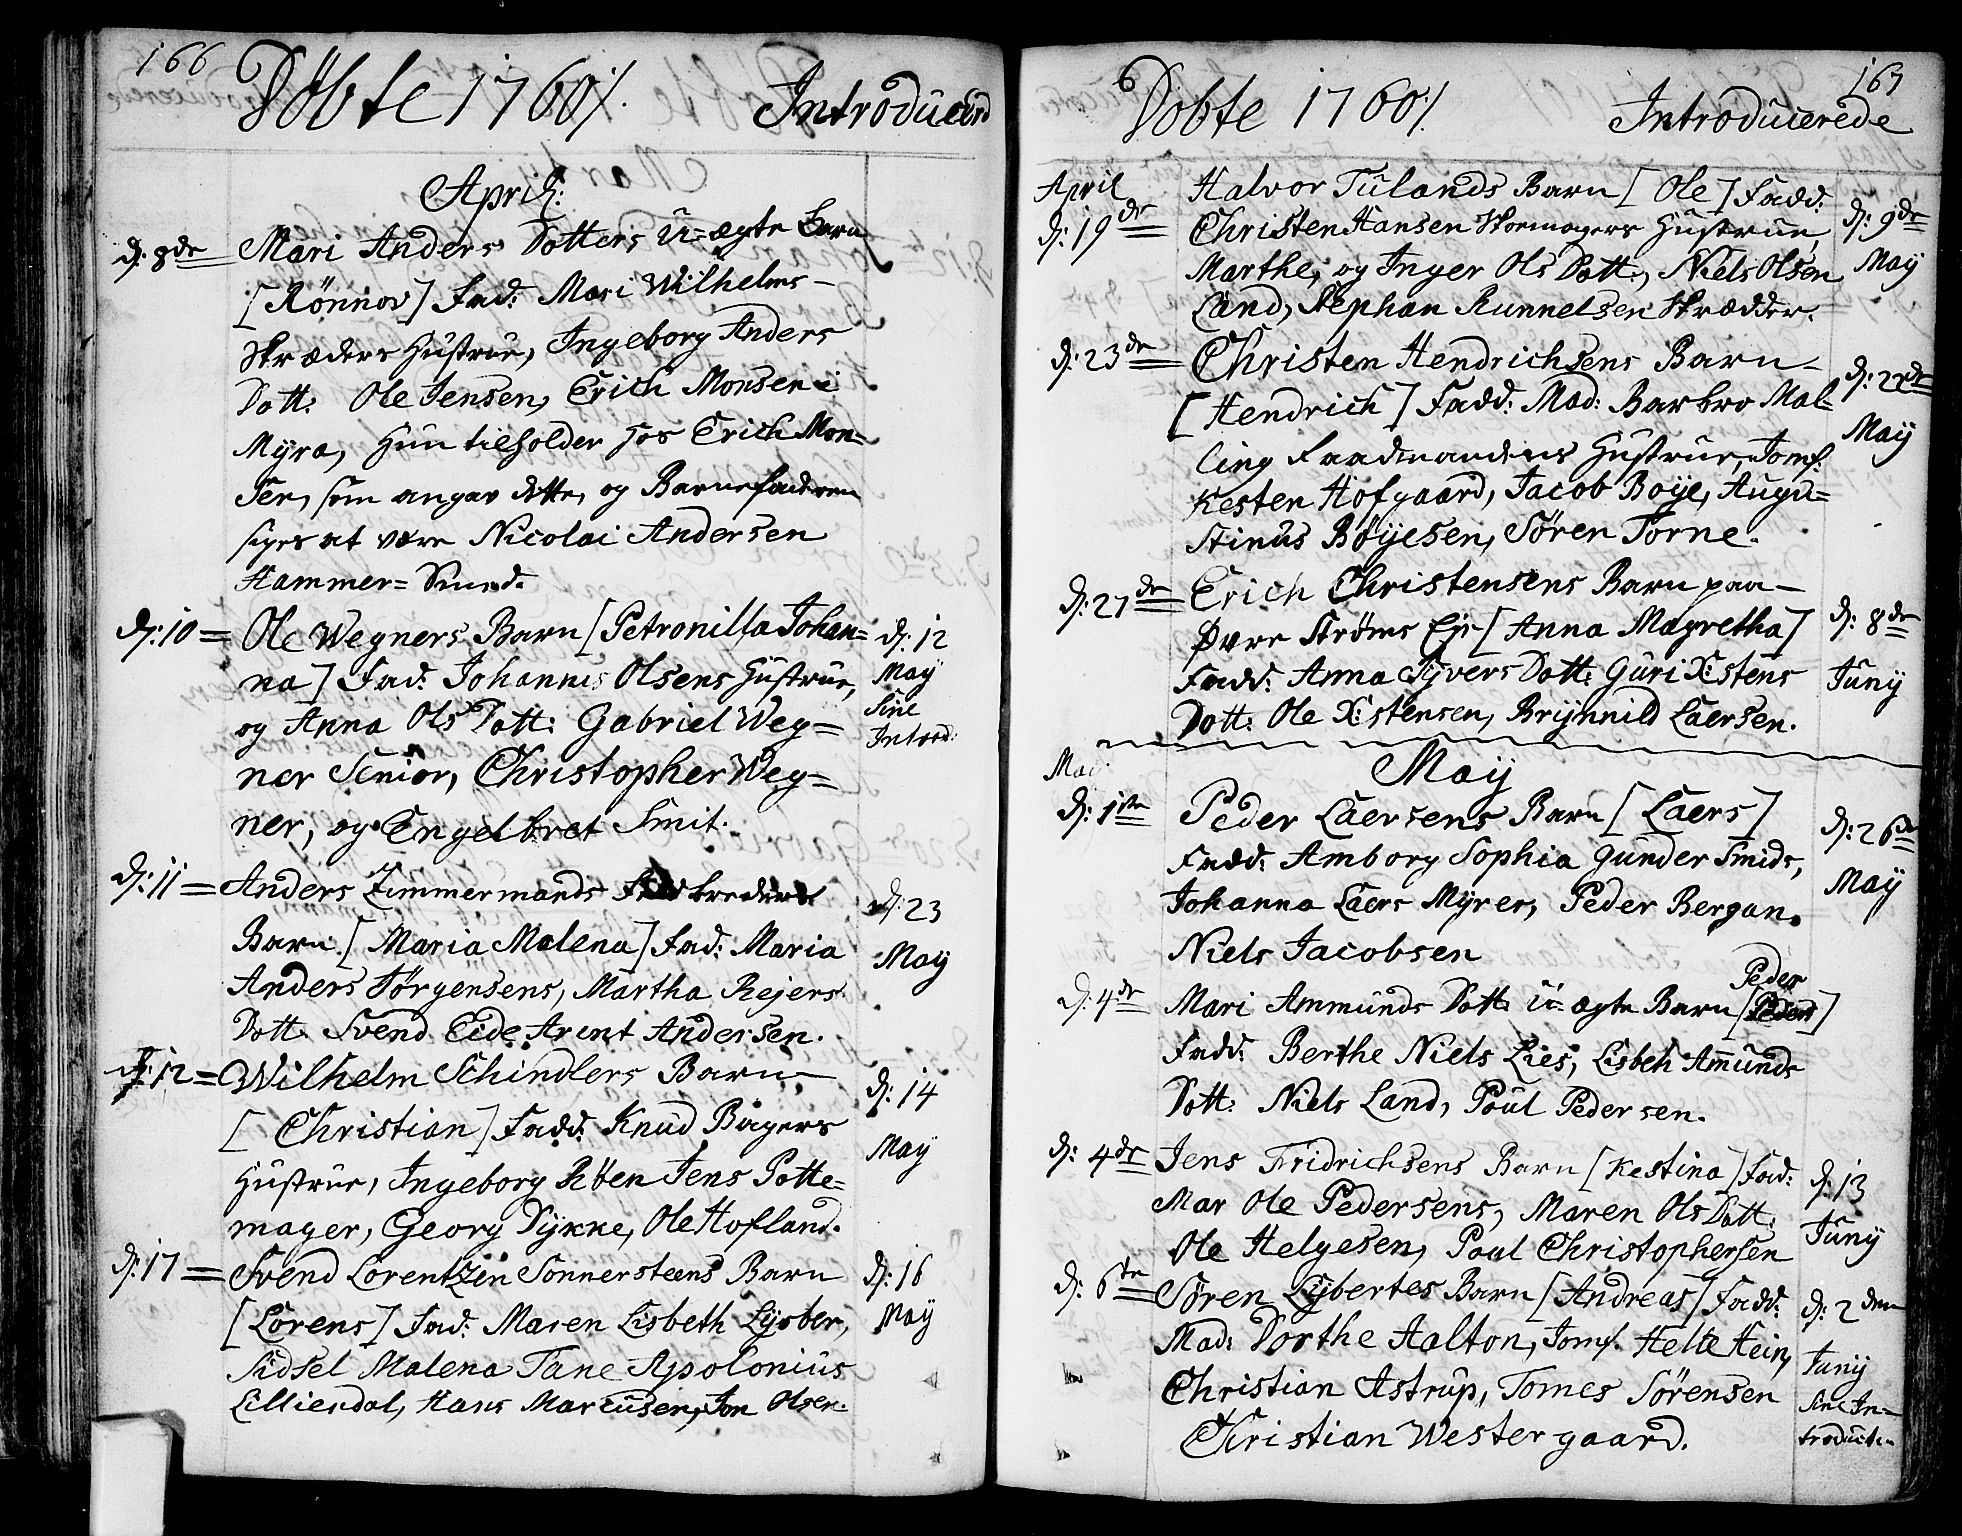 166
Döbte 1760/.
Introducerd
April:
d: 8de
Mari Anders Dotters U-ægte Barn
[Rönnov] Fad: Mari Wilhelms
Skræders Hustrue, Ingeborg Anders
Dott: Ole Jensen, Erich Monsen i
Myra, Hun tilholder hos Erich Mon=
sen, som angav dette, og Barnefaderen
siges at være Nicolai Andersen
Hammer= Smed.
d: 10 =
Ole Wegners Barn [Petronilla Johan=
na] Fad: Johannes Olsens Hustrue,
og Anna Ols Dott: Gabriel Weg=
ner Senior, Christopher Weg=
ner, og Engelbret Smit.
d: 12
May
Sine
Introd:
d: 11 =
Anders Zimmermands
Barn [Maria Malena] Fad: Maria
Anders Jörgensens, Martha Rejers
Dott. Svend Eide, Arent Andersen.
d: 23
May
d: 12 =
Wilhelm Schindlers Barn
[Christian] Fadd: Knud Bagers
Hustrue, Ingeborg Röen Jens Potte=
mager, Georg Dykke, Ole Hofland.
d: 14
May
d: 17 =
Svend Lorentzen Sonnersteens Barn
[Lorens] Fad: Maren Lisbeth Lysber,
Sidsel Malena Tane Apolonius
Lilliendal, Hans Marcusen, Jon Olsen.
d: 16
May
167
Döbte 1760/.
Introducerede
April
d: 19de
Halvor Tulands Barn [Ole] Fadd:
Christen Hansen Skomagers Hustrue,
Marthe, og Inger Ols Dott:, Niels Olsen
Land, Stephan Runnelsen Skrædder.
d: 9de
May
d: 23de
Christen Hendrichsens Barn
[Hendrich] Fadd: Mad: Barbro Mal=
ling Hustrue, Jomf:
Kesten Hofgaard, Jacob Boye, Augu=
stinus Böyesen, Sören Torne.
May
d: 27de
Erich Christensens Barn paa
Övre Ströms Eje [Anna Magretha]
Fadd: Anna Syvers Dott: Guri X:stens
Dott: Ole X:stensen, Brynnild Laersen.
d: 8de
Juny
May
d: 1ste
Peder Laersens Barn [Laers]
Fadd: Amborg Sophia Gunder Smids,
Johanna Laers Myrer, Peder Bergan.
Niels Jacobsen
d: 26de
May
d: 4de
Peder
Mari Ammunds Dott: U-ægte Barn [Peders]
Fadd: Berthe Niels Lies, Lisbeh Amunds
Dott: Niels Land, Poul Pedersen.
d: 4de
Jens Fridrichsens Barn [Kestina] Fad:
Mar Ole Pedersens, Maren Ols Dott:
Ole Helgesen, Poul Christophersen
d: 13
Juny
d: 6te
Sören Lybertes Barn [Andreas] Fadd:
Mad: Dorthe Aalton, Jomf. Helte Hein,
Christian Astrup, Tomes Sörensen
Christian Westergaard.
d: 2den
Juny
sine In=
troduct: